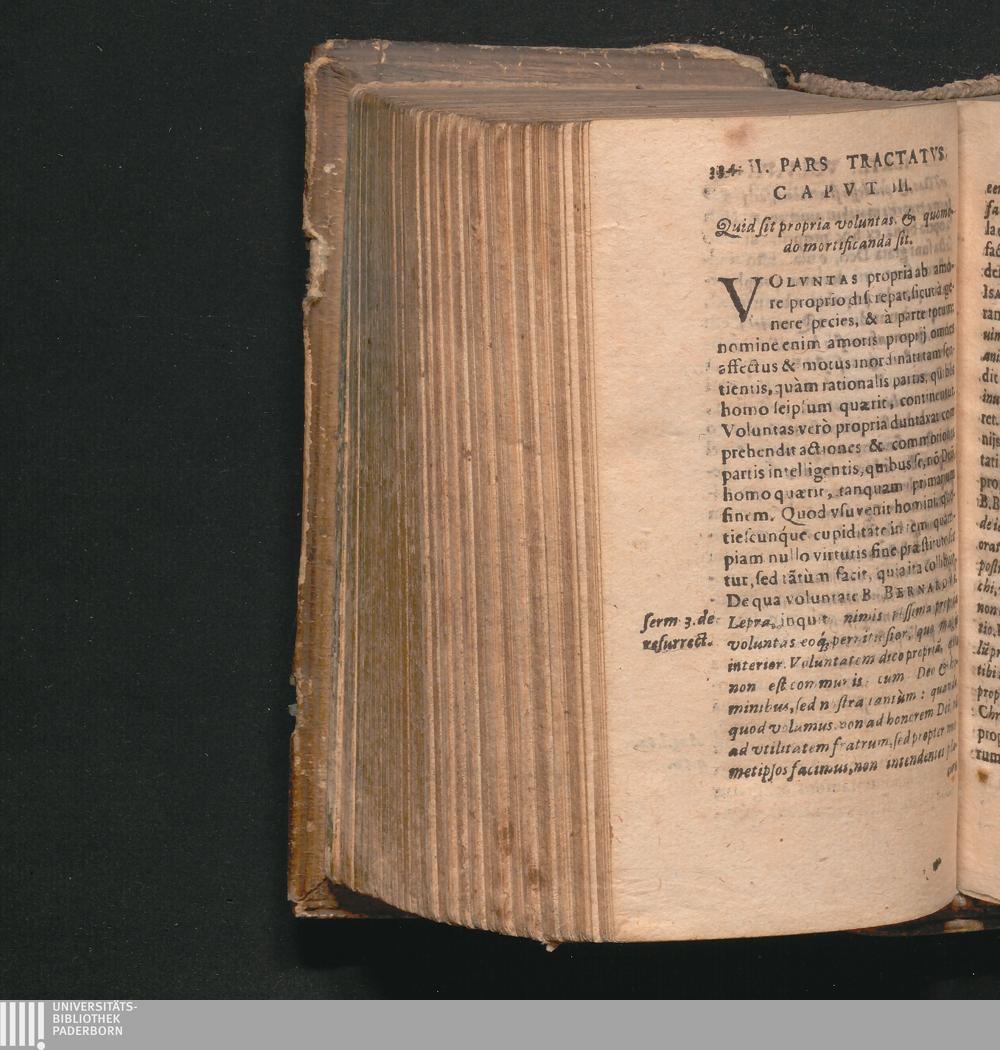 334 II. PARS TRACTATVS
CAPVT III.
Quid sit propria voluntas, & quomo-
do mortificanda sit.
VOLVNTAS propria ab amo-
re proprio discrepat, sicut à ge-
nere species, & à parte totum:
nomine enim amoris proprij omnes
affectus & motus inordinati tam sen-
tientis, quàm rationalis partis, quibus
homo seipsum quærit, continentur.
Voluntas verò propria duntaxat com
prehendit actiones & commotiones
partis intelligentis, quibus se, nõ Deũ
homo quærit, tanquam primarium
finem. Quod vsu venit homini, quo-
tiescunque cupiditate in rem quam-
piam nullo virtutis fine præstituto
tur, sed tãtùm facit, quia ita
De qua voluntate B. BERNARDVS.
serm. 3. de
resurrect.
Lepra, inquit, nimis pessima propria
voluntas eoq́; perniciosior, quo magis
interior. Voluntatem dico propriã, quæ
non est communis cum Deo & ho-
minibus, sed nostra tantùm: quando
quod volumus non ad honorem Dei,
ad vtilitatem fratrum, sed propter nos
metipsos facimus, non intendentes pla-
een
fa
lac
fac
dei
ISA
ran
uin
ani
dit
inu
ret.
nijs
tati
pro
B.B
de ie
orat
post
chi,
non
tio,
tibi
prop
Chr
prop
rum
UNIVERSITÄTS-
BIBLIOTHEK
PADERBORN